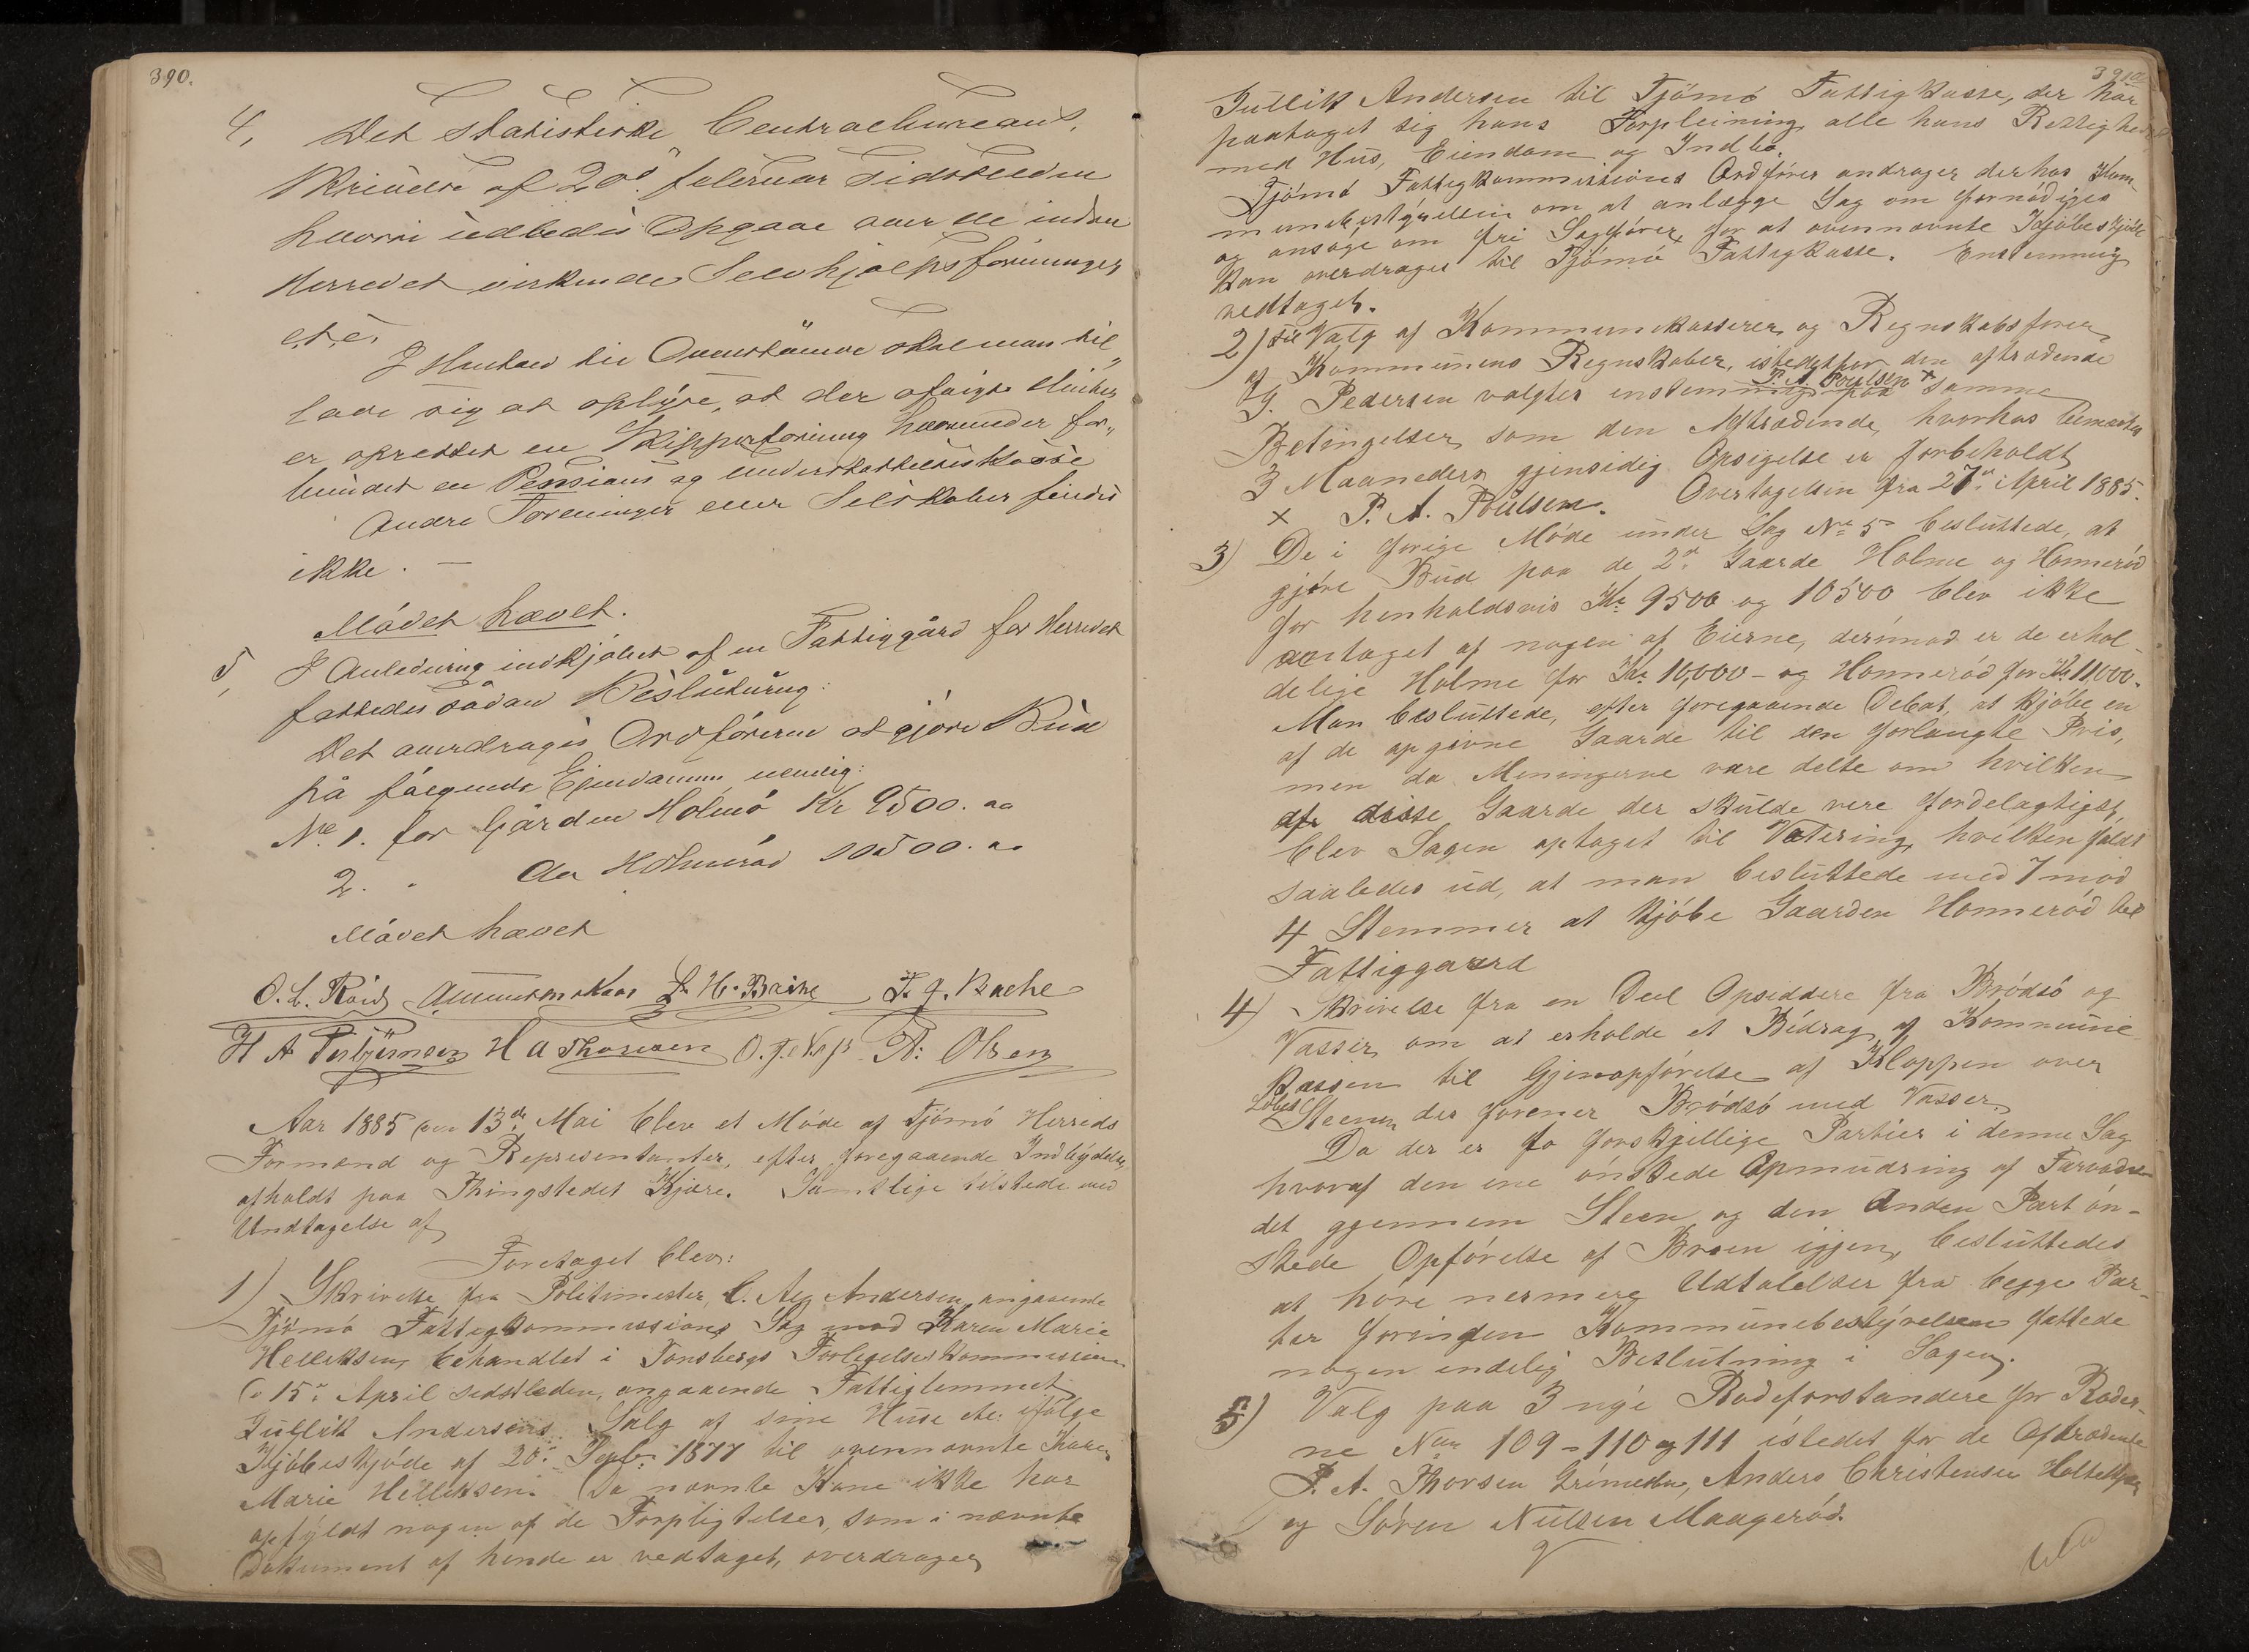 390.
4, Det statistiske Centralbureaus
Skrivelse af 20de februar sidstleden
hvorri udbedes Opgave over de inden
Herredet virkende Selvhjælpsforeninger
etc.
I Henhold til Ovenstående skal man til„
lade sig at oplyse, at der afvigte
er oprettet en Skipperforening hvorunder for„
bundet en Pensions og Understøttelseskasse
Andre Foreninger eller Selskaber findes
ikke. —
Mödet hævet.
5, I Anledning indkjöbet af en Fattiggård for Herredet
fattedes sådan Beslutning:
Det overdrages Ordföreren at gjöre Bud
på fölgende Ejendomme, nemlig:
No. 1. for Gården Holmö Kr 9500. oo
2. " do Honneröd 10500. oo
Mödet hævet
O. C. Röed L. H. Bache F. J. Bache
H A Torbjörnsen H A Thorsen A: Olsen
Aar 1885 den 13de Mai blev et Möde af Tjömö Herreds
Formænd og Representanter, efter foregaaende Indbydelse,
afholdt paa Thingstedet Kjære. Samtlige tilstede med
Undtagelse af
Foretaget blev:
1) Skrivelse fra Politimester C. Aug Andersen angaaende
Tjömö Fattigkommissions Sag mod Karen Marie
Helliksen, behandlet i Tönsbergs Forligelseskommission
15de April sidstleden, angaaende Fattiglemmet
Gullik Andersens Salg af sine Huse etc. ifölge
Kjöbeskjöde af 20de Septbr 1877 til ovennævnte Karen
Marie Helliksen. Da nævnte Kone ikke har
opfyldt nogen af de Forpligtelser, som i nævnte
Dokument af hende er vedtaget, overdrager
391
Gullik Andersen til Tjömö Fattigkasse, der har
paataget sig hans Forpleining alle hans Rettigheder
med Hus, Eiendom og Indbo.
Tjömö Fattigkommissions Ordförer andrager derhos Kom-
munebestyrelsen om at anlægge Sag om fornödiges
og ansöge om fri Sagförer, for at ovennævnte Kjöbeskjöde
kan overdrages til Tjömö Fattigkasse. Enstemmig
vedtaget.
2) Til Valg af Kommunekasserer og Regnskabsförer
af Kommunens Regnskaber, istedetfor den aftrædende
G. Pedersen valgtes enstemmig P. A. Poulsen x paa samme
Betingelser, som den Aftrædende, hvorhos bemærkes
3 Maaneders gjensidig Opsigelse er forbeholdt
x P. A. Poulsen. Overtagelsen fra 27de April 1885.
3) De i forige Möde under Sag No 5 besluttede, at
gjöre Bud paa de 2de Gaarde Holme og Honneröd
for henholdsvis Kr 9500 og 10500 blev ikke
antaget af nogen af Eierne, derimod er de erhol-
delige Holme for Kr. 10,000 - og Honneröd for Kr. 11,000.
Man besluttede, efter foregaaende Debat, at kjöbe en
af de opgivne Gaarde til den forlangte Pris,
men da Meningerne vare delte om hvilken
af disse Gaarde der skulde være fordelagtigst
blev Sagen optaget til Votering, hvilken faldt
saaledes ud, at man besluttede med 7 mod
4 Stemmer at kjöbe Gaarden Honneröd til
Fattiggaard
4) Skrivelse fra en Deel Opsiddere fra Brödsö og
Vasser, om at erholde et Bidrag af Kommune
kassen til Gjenopförelse af Kloppen over
Steenen der forener Brödsö med Vasser.
Da der er to forskjellige Partier i denne Sag
hvoraf den ene önskede Opmudring af Farvan-
det gjennem Steen og den Anden Part ön-
skede Opförelse af Broen igjen, besluttedes
at höre nermere Udtalelser fra begge Par-
ter foreinden Kommunebestyrelsen fattede
nogen endelig Beslutning i Sagen.
5) Valg paa 3 nye Rodeforstandere for Roder-
ne No 109 - 110 og 111 istedet for de Aftrædende
P. A. Thorsen Grimestad, Anders Christensen Holtekjær
og Sören Nielsen Maageröd.